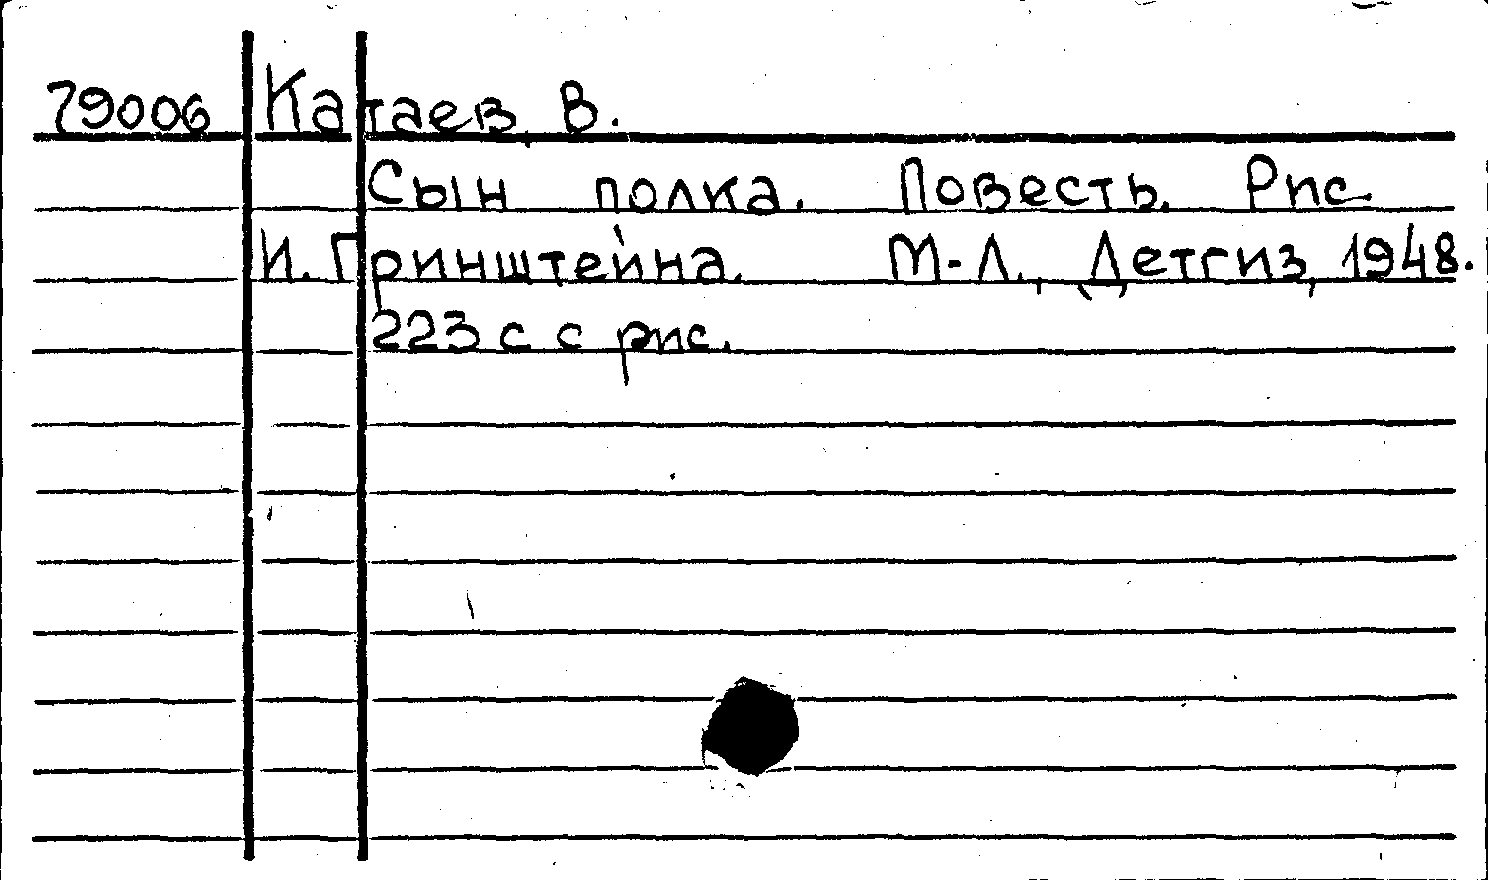 79006 Катаев, В.
Сын полка. Повесть. Рис
И. Гринштейна. М-Л., Детгиз, 1948.
223 с с рис.